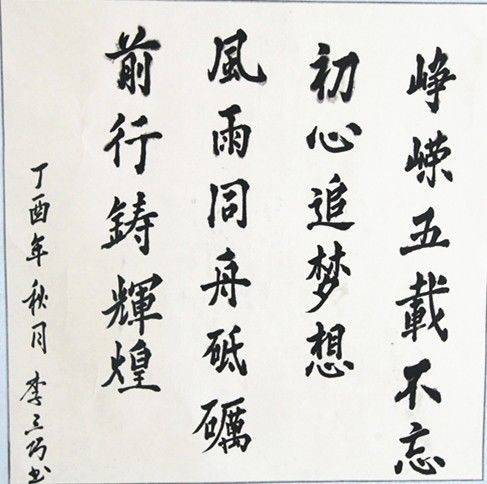 峥嵘五載不忘
初心追梦想
風雨同舟砥礪
前行鋳輝煌
丁酉年秋月 李三巧书